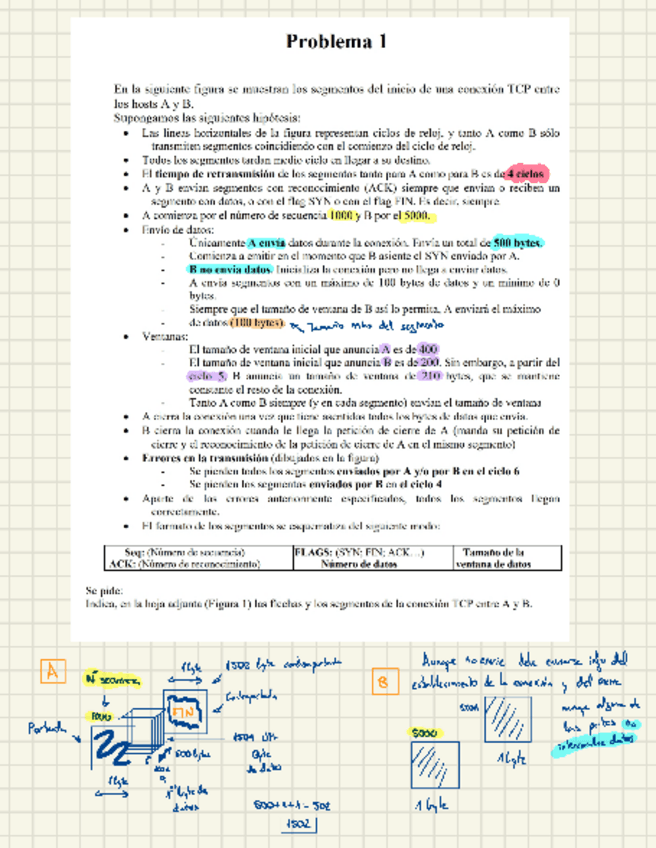 Problema 1
En la siguiente figura se muestran los segmentos del inicio de una conexión TCP entre
los hosts A y B.
Supongamos las siguientes hipótesis:
• Las líneas horizontales de la figura representan ciclos de reloj, y tanto A como B sólo
transmiten segmentos coincidiendo con el comienzo del ciclo de reloj.
• Todos los segmentos tardan medio ciclo en llegar a su destino.
• El tiempo de retransmisión de los segmentos tanto para A como para B es de 4 ciclos
• A y B envían segmentos con reconocimiento (ACK) siempre que envían o reciben un
segmento con datos, o con el flag SYN o con el flag FIN. Es decir, siempre
• A comienza por el número de secuencia 1000 y B por el 5000.
• Envío de datos:
- Únicamente A envía datos durante la conexión. Envía un total de 500 bytes.
- Comienza a emitir en el momento que B asiente el SYN enviado por A.
- B no envía datos. Inicializa la conexión pero no llega a enviar datos.
- A envía segmentos con un máximo de 100 bytes de datos y un mínimo de 0
bytes.
- Siempre que el tamaño de ventana de B así lo permita, A enviará el máximo
- de datos (100 bytes). Tamaño máx del segmento
• Ventanas:
- El tamaño de ventana inicial que anuncia A es de 400
- El tamaño de ventana inicial que anuncia B es de 200. Sin embargo, a partir del
ciclo 5, B anuncia un tamaño de ventana de 210 bytes, que se mantiene
constante el resto de la conexión.
- Tanto A como B siempre (y en cada segmento) envían el tamaño de ventana
• A cierra la conexión una vez que tiene asentidas todos los bytes de datos que envía.
• B cierra la conexión cuando le llega la petición de cierre de A (manda su petición de
cierre y el reconocimiento de la petición de cierre de A en el mismo segmento)
• Errores en la transmisión (dibujados en la figura)
- Se pierden todos los segmentos enviados por A y/o por B en el ciclo 6
- Se pierden los segmentos enviados por B en el ciclo 4
• Aparte de los errores anteriormente especificados, todos los segmentos llegan
correctamente.
• El formato de los segmentos se esquematiza del siguiente modo:
Seq: (Número de secuencia) FLAGS: (SYN; FIN; ACK…) Tamaño de la
ACK: (Número de reconocimiento) Número de datos ventana de datos
Se pide:
Indica, en la hoja adjunta (Figura 1) las flechas y los segmentos de la conexión TCP entre A y B.
A
Nº secuencia
1000
Portada
1 byte
FIN
1 byte
1502 byte contraportada
Contraportada
500 byte
1º byte de
datos
Byte
de datos
1502
B
Aunque no envíe debe enviarse info del
establecimiento de la conexión y del cierre
aunque alguna de
las partes no
intercambie datos
5000
1 byte
5001
1 byte